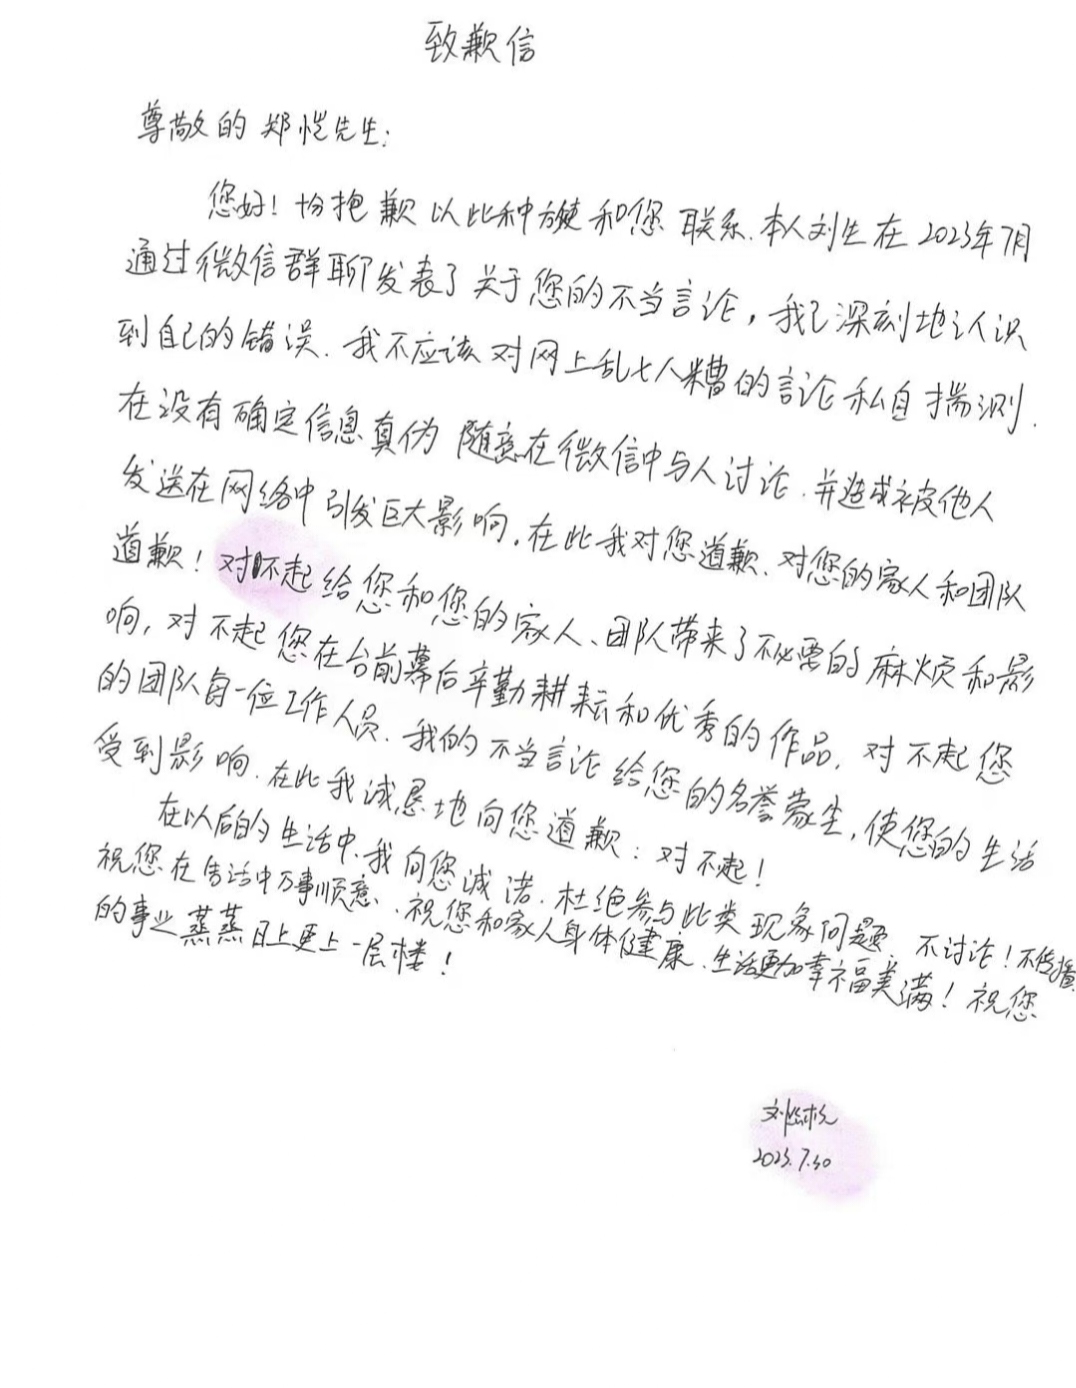 致歉信
尊敬的郑恺先生:
您好! 十分抱歉以此种方式和您联系.本人刘生在2023年7月
通过微信群聊发表了关于您的不当言论,我已深刻地认识
到自己的错误.我不应该对网上乱七八糟的言论私自揣测.
在没有确定信息真伪随意在微信中与人讨论.并造成被他人
发送在网络中引发巨大影响.在此我对您道歉.对您的家人和团队
道歉!对不起给您和您的家人、团队带来了不必要的麻烦和影
响,对不起您在台前幕后辛勤耕耘和优秀的作品.对不起您
的团队每一位工作人员.我的不当言论给您的名誉蒙尘,使您的生活
受到影响.在此我诚恳地向您道歉:对不起!
在以后的生活中.我向您诚诺.杜绝参与此类现象问题.不讨论!不传播
祝您在生活中万事顺意、祝您和家人身体健康.生活更加幸福美满!祝您
的事业蒸蒸日上更上一层楼!
2023.7.30